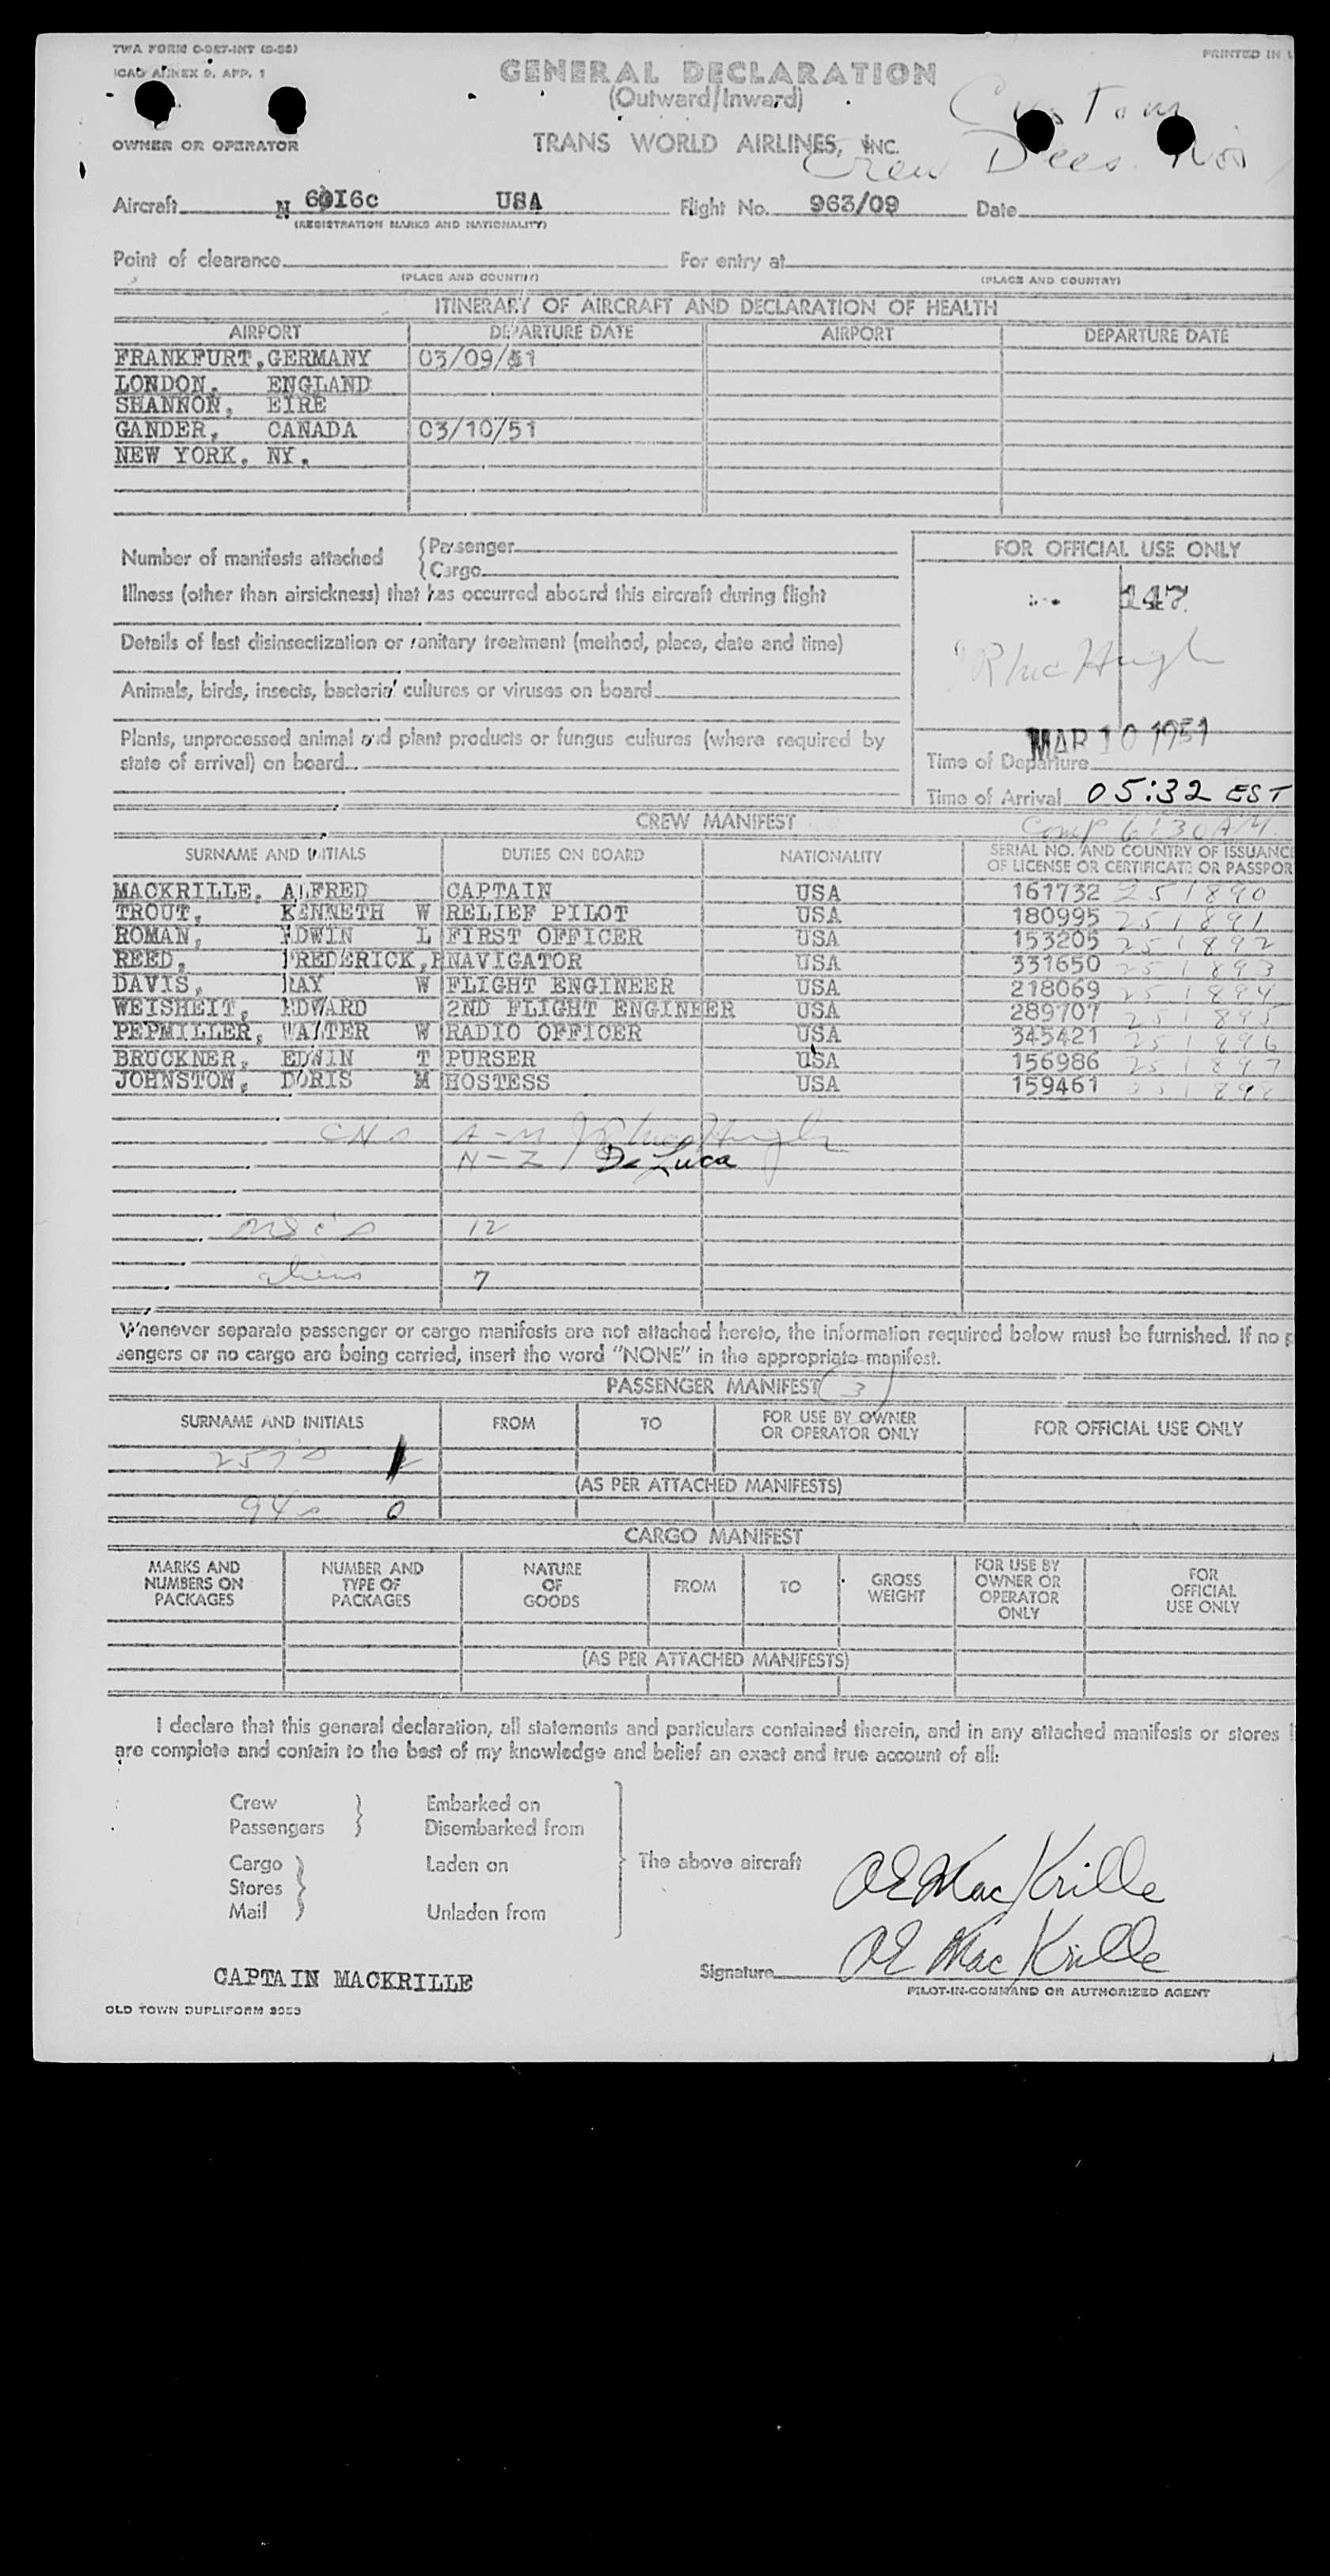 TWA FORM C-927-INT (5-50)
PRINTED IN U
ICAO ANNEX 9, APP. 1
GENERAL DECLARATION
(Outward/Inward)
Custom
OWNER OR OPERATOR
TRANS WORLD AIRLINES, INC.
Crew Decs.
Aircraft N 6016c USA Flight No. 963/09 Date
(REGISTRATION MARKS AND NATIONALITY)
Point of clearance For entry at
(PLACE AND COUNTRY) (PLACE AND COUNTRY)
ITINERARY OF AIRCRAFT AND DECLARATION OF HEALTH
AIRPORT DEPARTURE DATE AIRPORT DEPARTURE DATE
FRANKFURT, GERMANY 03/09/51
LONDON, ENGLAND
SHANNON, EIRE
GANDER, CANADA 03/10/51
NEW YORK, NY.
Number of manifests attached { Passenger
{ Cargo
FOR OFFICIAL USE ONLY
Illness (other than airsickness) that has occurred aboard this aircraft during flight
147
Details of last disinsectization or sanitary treatment (method, place, date and time)
Animals, birds, insects, bacterial cultures or viruses on board
Plants, unprocessed animal and plant products or fungus cultures (where required by
state of arrival) on board
MAR 10 1951
Time of Departure
Time of Arrival 05:32 EST
CREW MANIFEST Comp 6:30 AM
SURNAME AND INITIALS DUTIES ON BOARD NATIONALITY SERIAL NO. AND COUNTRY OF ISSUANC
OF LICENSE OR CERTIFICATE OR PASSPOR
MACKRILLE, ALFRED CAPTAIN USA 161732 251890
TROUT, KENNETH W RELIEF PILOT USA 180995 251891
ROMAN, EDWIN L FIRST OFFICER USA 153205 251892
REED, FREDERICK, R NAVIGATOR USA 331650 251893
DAVIS, RAY W FLIGHT ENGINEER USA 218069 251894
WEISHEIT, EDWARD 2ND FLIGHT ENGINEER USA 289707 251895
PEPMILLER, WALTER W RADIO OFFICER USA 345421 251896
BRUCKNER, EDWIN T PURSER USA 156986 251897
JOHNSTON, DORIS M HOSTESS USA 159461 251898
A-M
N-Z De Luca
12
aliens 7
Whenever separate passenger or cargo manifests are not attached hereto, the information required below must be furnished. If no p
sengers or no cargo are being carried, insert the word "NONE" in the appropriate manifest.
PASSENGER MANIFEST (3)
SURNAME AND INITIALS FROM TO FOR USE BY OWNER OR OPERATOR ONLY FOR OFFICIAL USE ONLY
257s
(AS PER ATTACHED MANIFESTS)
94s 0
CARGO MANIFEST
MARKS AND NUMBERS ON PACKAGES NUMBER AND TYPE OF PACKAGES NATURE OF GOODS FROM TO GROSS WEIGHT FOR USE BY OWNER OR OPERATOR ONLY FOR OFFICIAL USE ONLY
(AS PER ATTACHED MANIFESTS)
I declare that this general declaration, all statements and particulars contained therein, and in any attached manifests or stores l
are complete and contain to the best of my knowledge and belief an exact and true account of all:
Crew } Embarked on
Passengers } Disembarked from
Cargo } Laden on } The above aircraft
Stores }
Mail } Unladen from
AE MacKrille
CAPTAIN MACKRILLE Signature AE MacKrille
PILOT-IN-COMMAND OR AUTHORIZED AGENT
OLD TOWN DUPLIFORM 3053